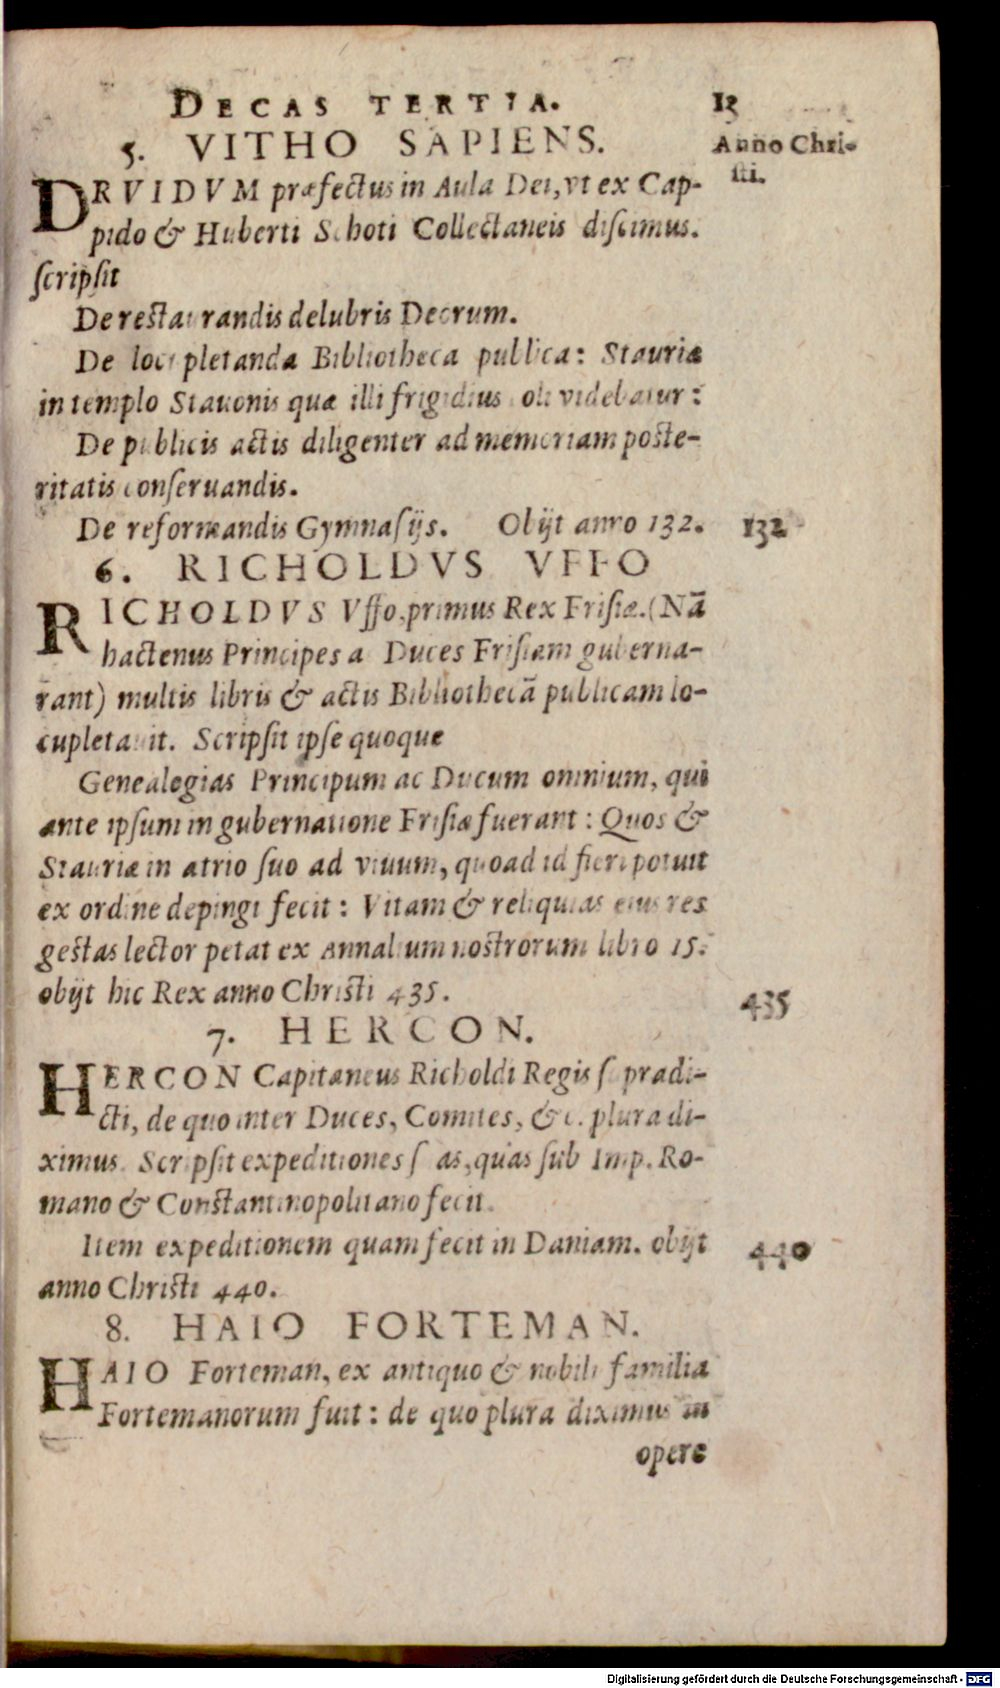 DECAS TERTIA. 13
5. VITHO SAPIENS. Anno Chri-
sti.
DRVIDVM præfectus in Aula Dei, vt ex Cap-
pido & Huberti Schoti Collectaneis discimus.
scripsit
De restaurandis delubris Deorum.
De locupletanda Bibliotheca publica: Stauriæ
in templo Stauonis quæ illi frigidius coli videbatur:
De publicis actis diligenter ad memoriam poste-
ritatis conseruandis.
De reformandis Gymnasijs. Obijt anno 132. 132
6. RICHOLDVS VFFO
RICHOLDVS Vffo, primus Rex Frisiæ. (Nā
hactenus Principes a Duces Frisiam guberna-
rant) multis libris & actis Bibliothecā publicam lo-
cupletauit. Scripsit ipse quoque
Genealogias Principum ac Ducum omnium, qui
ante ipsum in gubernatione Frisiæ fuerant: Quos &
Stauriæ in atrio suo ad viuum, quoad id fieri potuit
ex ordine depingi fecit: Vitam & reliquias eius res
gestas lector petat ex Annalium nostrorum libro 15.
obijt hic Rex anno Christi 435. 435
7. HERCON.
HERCON Capitaneus Richoldi Regis supradi-
cti, de quo inter Duces, Comites, &c. plura di-
ximus. Scripsit expeditiones suas, quas sub Imp. Ro-
mano & Constantinopolitano fecit.
Item expeditionem quam fecit in Daniam. obijt 440
anno Christi 440.
8. HAIO FORTEMAN.
HAIO Forteman, ex antiquo & nobili familia
Fortemanorum fuit: de quo plura diximus in
opere
Digitalisierung gefördert durch die Deutsche Forschungsgemeinschaft - DFG